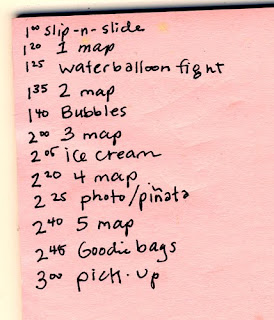 1⁰⁰ slip-n-slide
1²⁰ 1 map
1²⁵ waterballoon fight
1³⁵ 2 map
1⁴⁰ Bubbles
2⁰⁰ 3 map
2⁰⁵ ice cream
2²⁰ 4 map
2²⁵ photo/piñata
2⁴⁰ 5 map
2⁴⁵ Goodie bags
3⁰⁰ pick-up